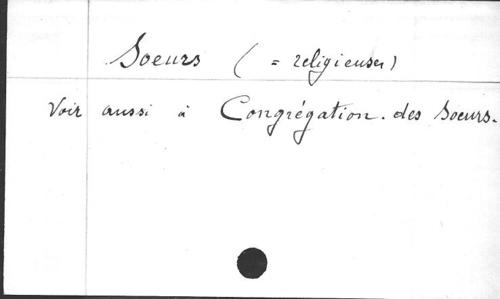 Soeurs ( = religieuses)
Voir aussi à Congrégation. des Soeurs.